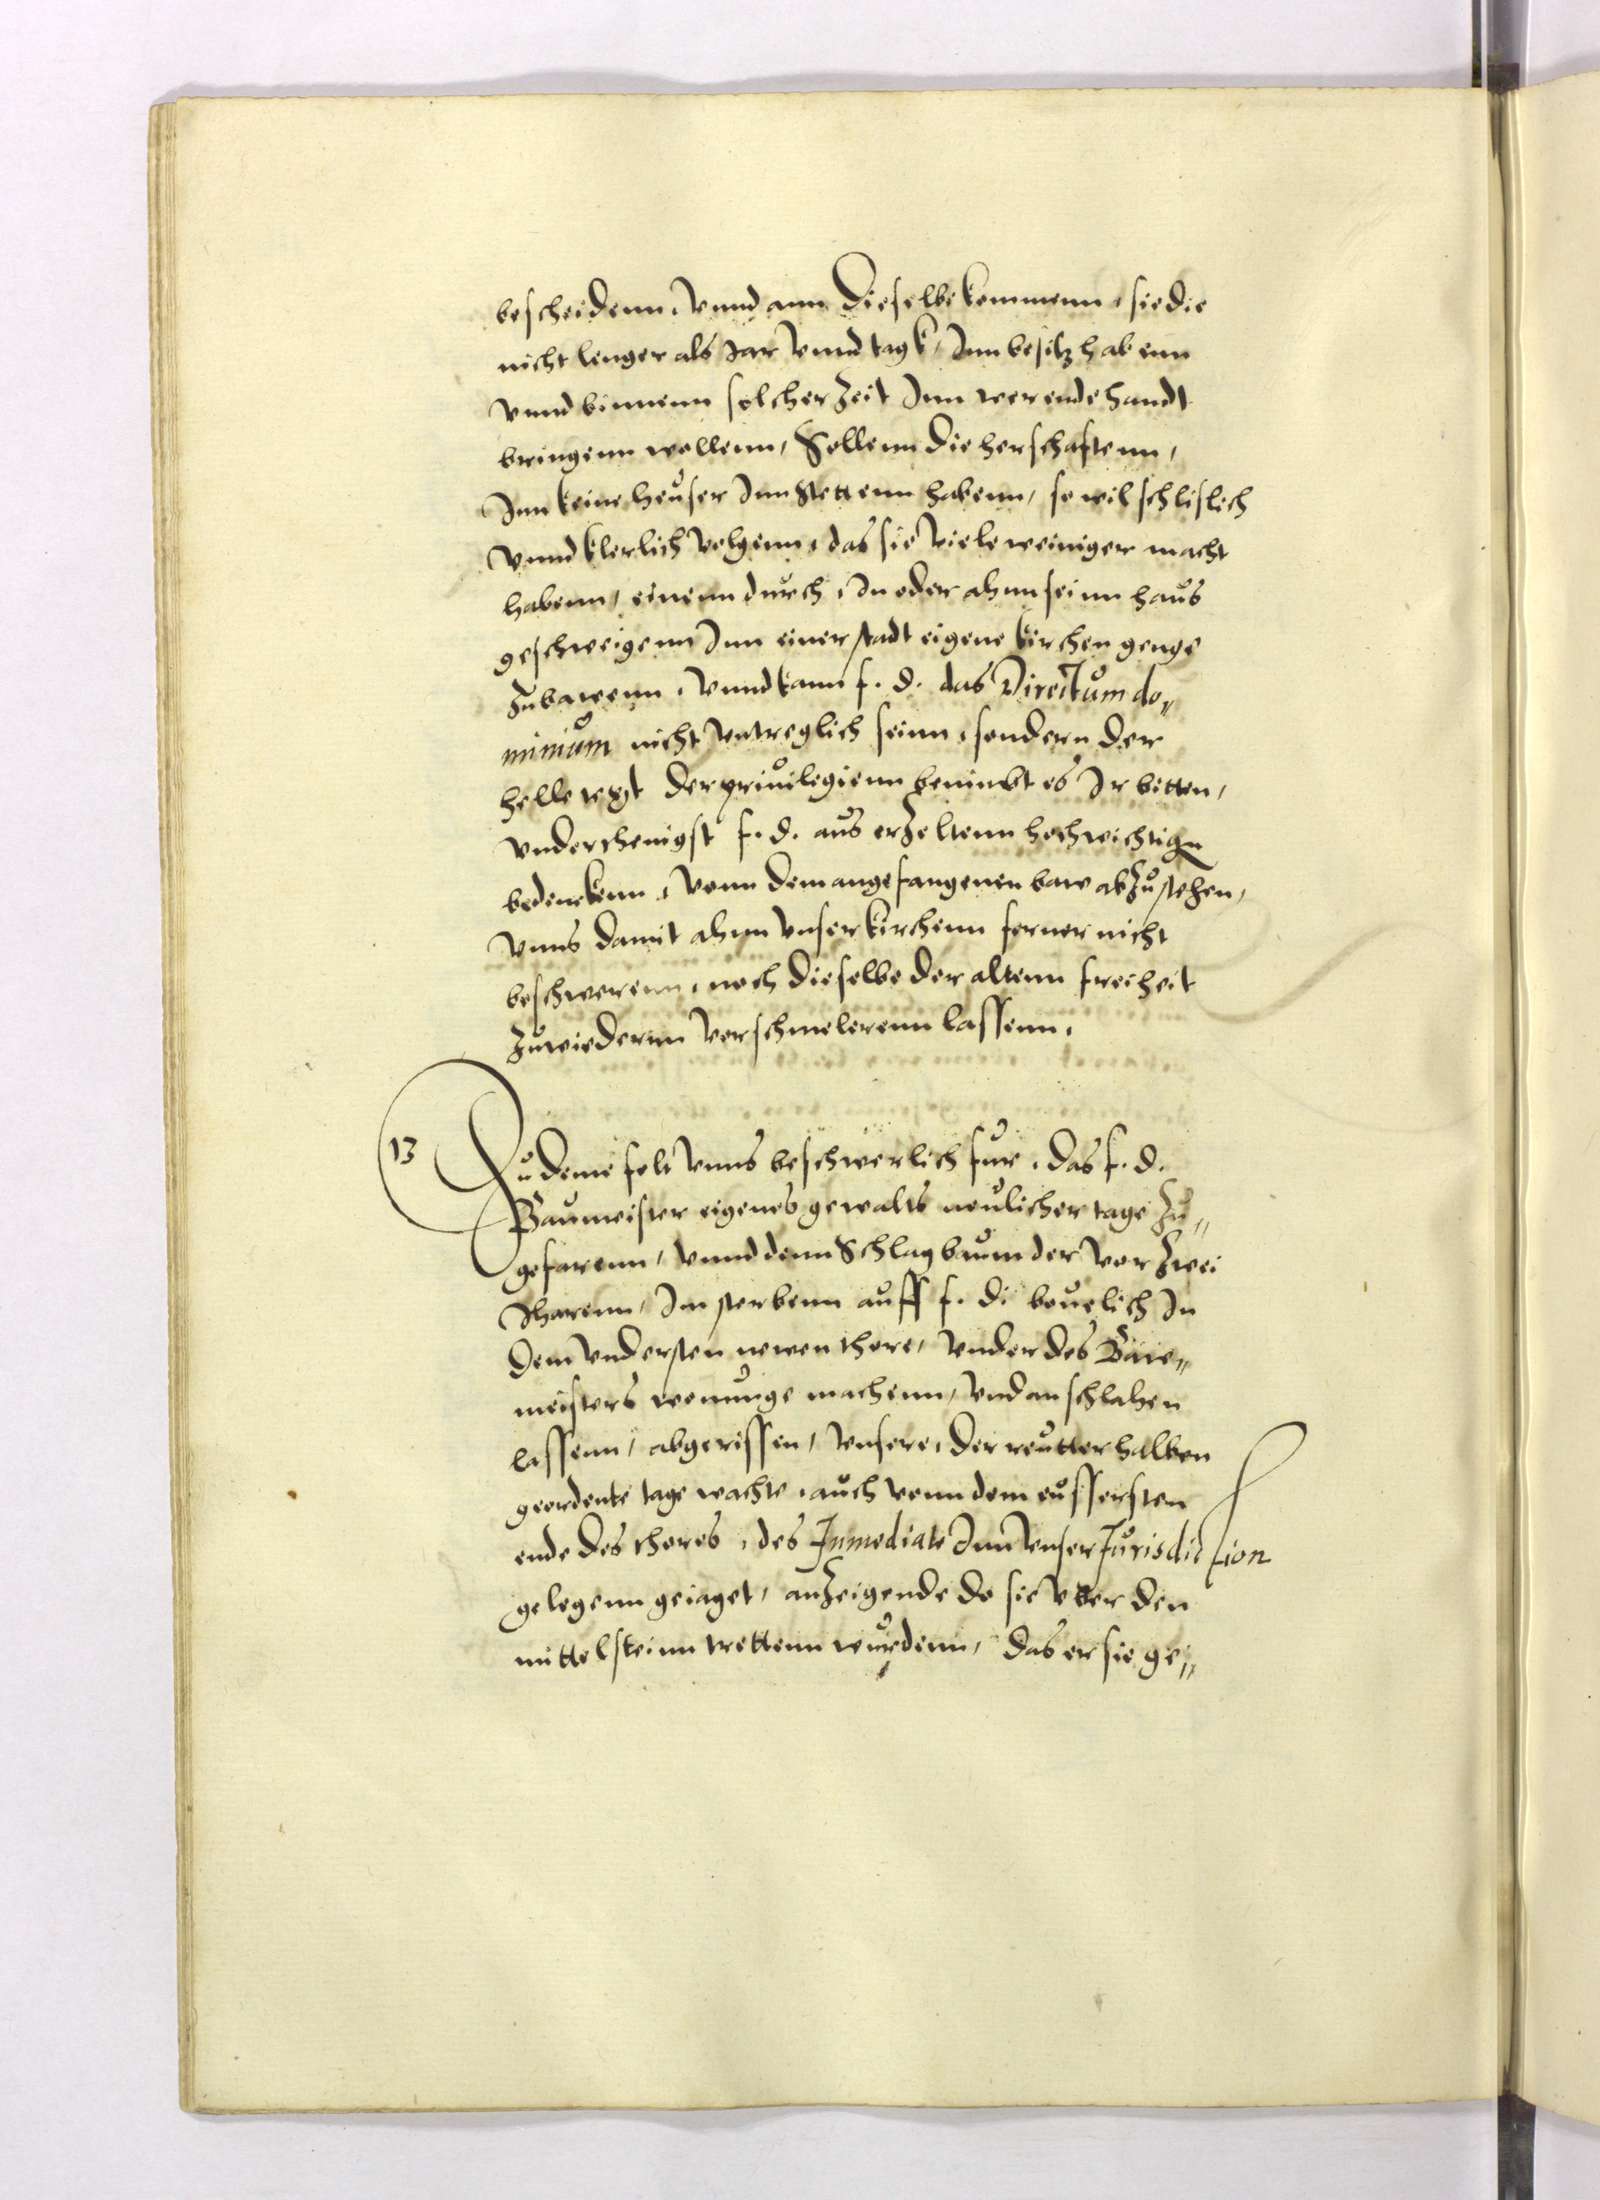 bescheidenn, vnnd ann dieselbe kommenn, sie die
nicht lenger als Jar vnnd tagk, Inn besitz habenn
vnnd binnenn solcher Zeit Inn werende handt
bringenn wollenn, Sollenn die herschaftenn,
Inn keine heuser Inn Stettenn habenn, so wil schlislich
vnnd klerlich volgenn, das sie viele weiniger macht
habenn, einenn durch, In oder ahnn seinn haus
geschweigenn Inn einer stadt eigene kirchen genge
Zubawenn, vnnd kann f. d. das Directum do„
minium nicht vntreglich seinn, sondern der
helle text der priuilegienn benimbt es Ir bitten,
vnderthenigst f. d. aus erZeltenn hochwichtign
bedenckenn, vonn dem angefangenen baw abZustehen,
vnns damit ahnn vnser kirchenn ferner nicht
beschwerenn, noch dieselbe der altenn freiheit
Zuwiedernn verschmelerenn lassenn.
13 Zu deme felt vnns beschwerlich fur, das f. d.
Baumeister eigenes gewalts neulicher tage Zu„
gefarenn, vnnd denn Schlagbaum der vor Zwei
Jharenn, Im sterbenn auff f. d. beuelich In
dem vndersten newen thore, vnder des Baw„
meisters wonunge machenn, vnd anschlahen
lassenn, abgerissen, vnsere, der reutter halben
geordente tage wachte, auch vonn dem eussersten
ende des thores, des Immediate Inn vnser Jurisdiction
gelegenn geiaget, anZeigende do sie vber den
mittelsteinn trettenn wurdenn, das er sie ge„